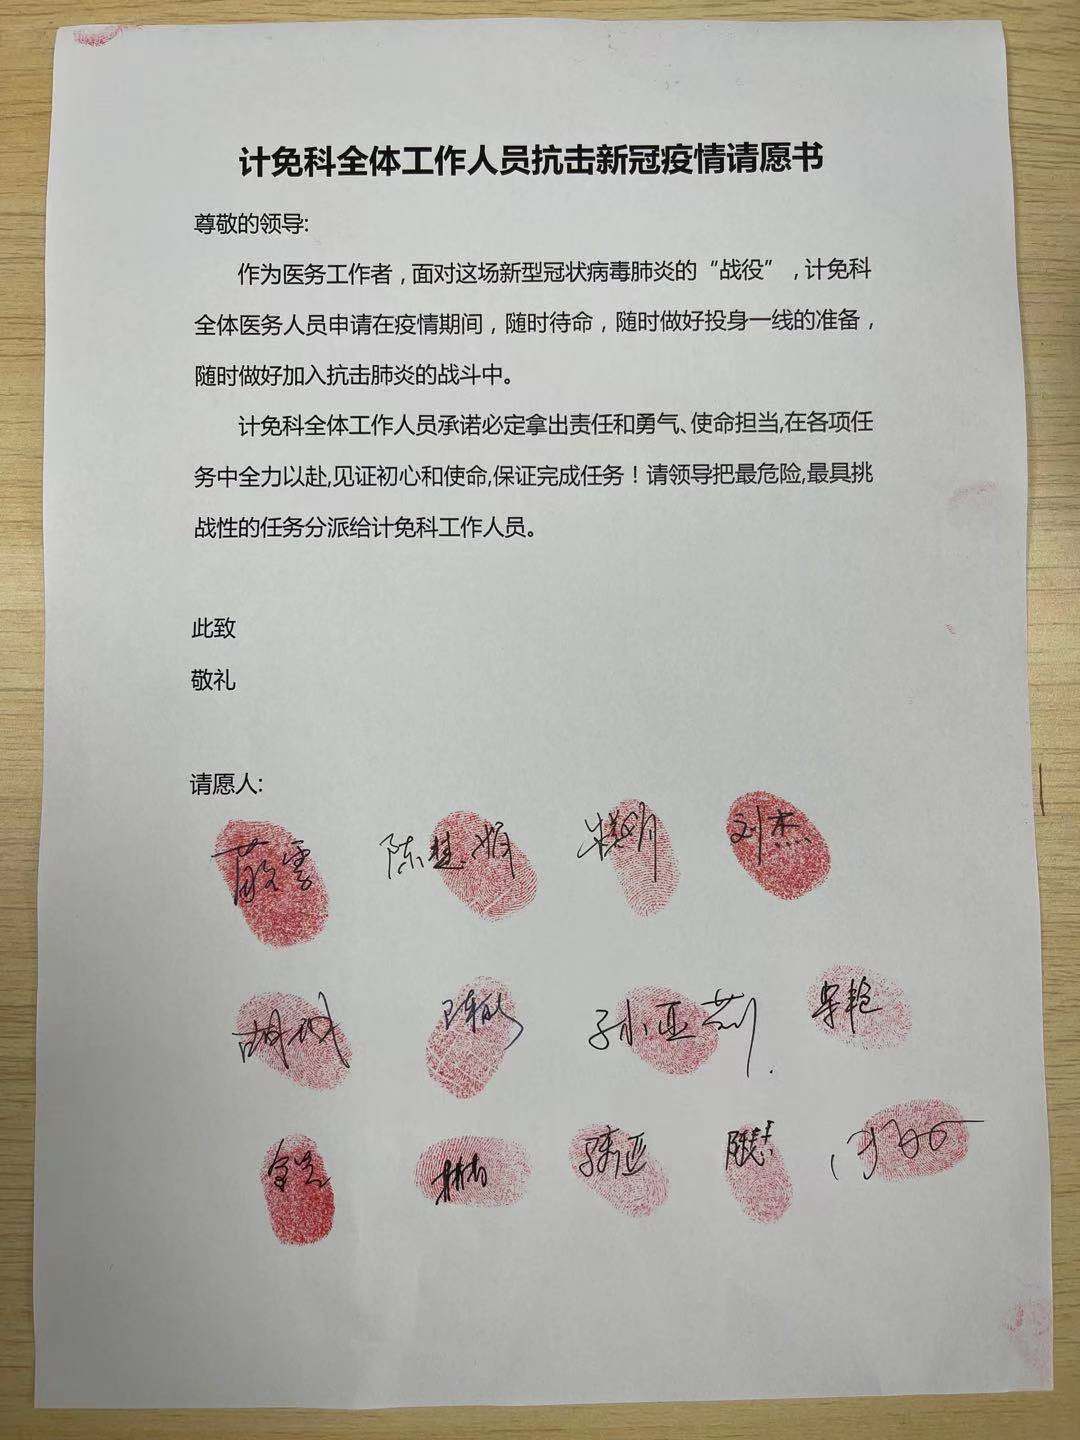 计免科全体工作人员抗击新冠疫情请愿书
尊敬的领导:
作为医务工作者，面对这场新型冠状病毒肺炎的“战役”，计免科
全体医务人员申请在疫情期间，随时待命，随时做好投身一线的准备，
随时做好加入抗击肺炎的战斗中。
计免科全体工作人员承诺必定拿出责任和勇气、使命担当,在各项任
务中全力以赴,见证初心和使命,保证完成任务！请领导把最危险,最具挑
战性的任务分派给计免科工作人员。
此致
敬礼
请愿人:
刘杰